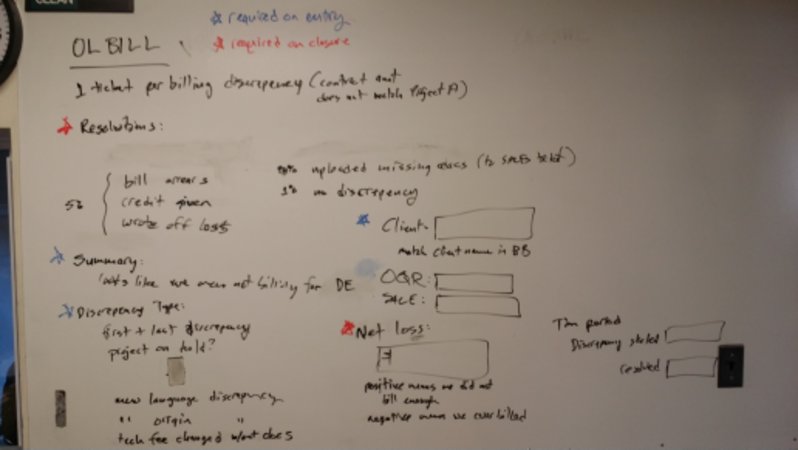 OL BILL
* required on entry
* required on closure
1 ticket per billing discrepancy (contract amt
does not match Project A)
* Resolutions:
bill arrears
credit given
wrote off loss
uploaded missing docs (to SALES ticket)
1% no discrepancy
* Client:
match client name in BB
* Summary:
looks like we were not billing for DE
OQR:
SALE:
* Discrepancy Type:
first + last discrepancy
project on hold?
new language discrepancy
" origin "
tech fee changed w/out docs
* Net loss:
#
positive means we did not
bill enough
negative means we overbilled
Time period
Discrepancy started
resolved